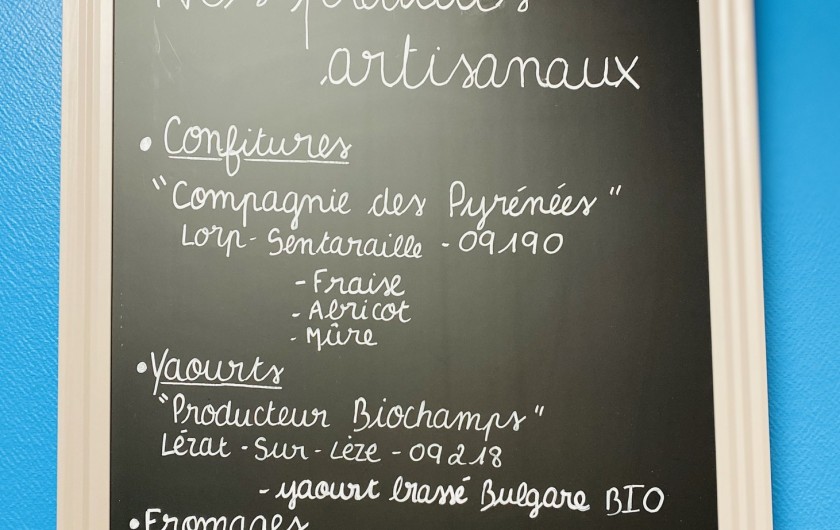 Nos produits
artisanaux
• Confitures
"Compagnie des Pyrénées"
Lorp - Sentaraille - 09190
- Fraise
- Abricot
- Mûre
• Yaourts
"Producteur Biochamps"
Lézat - Sur - Lèze - 09218
- yaourt brassé Bulgare BIO
• Fromages